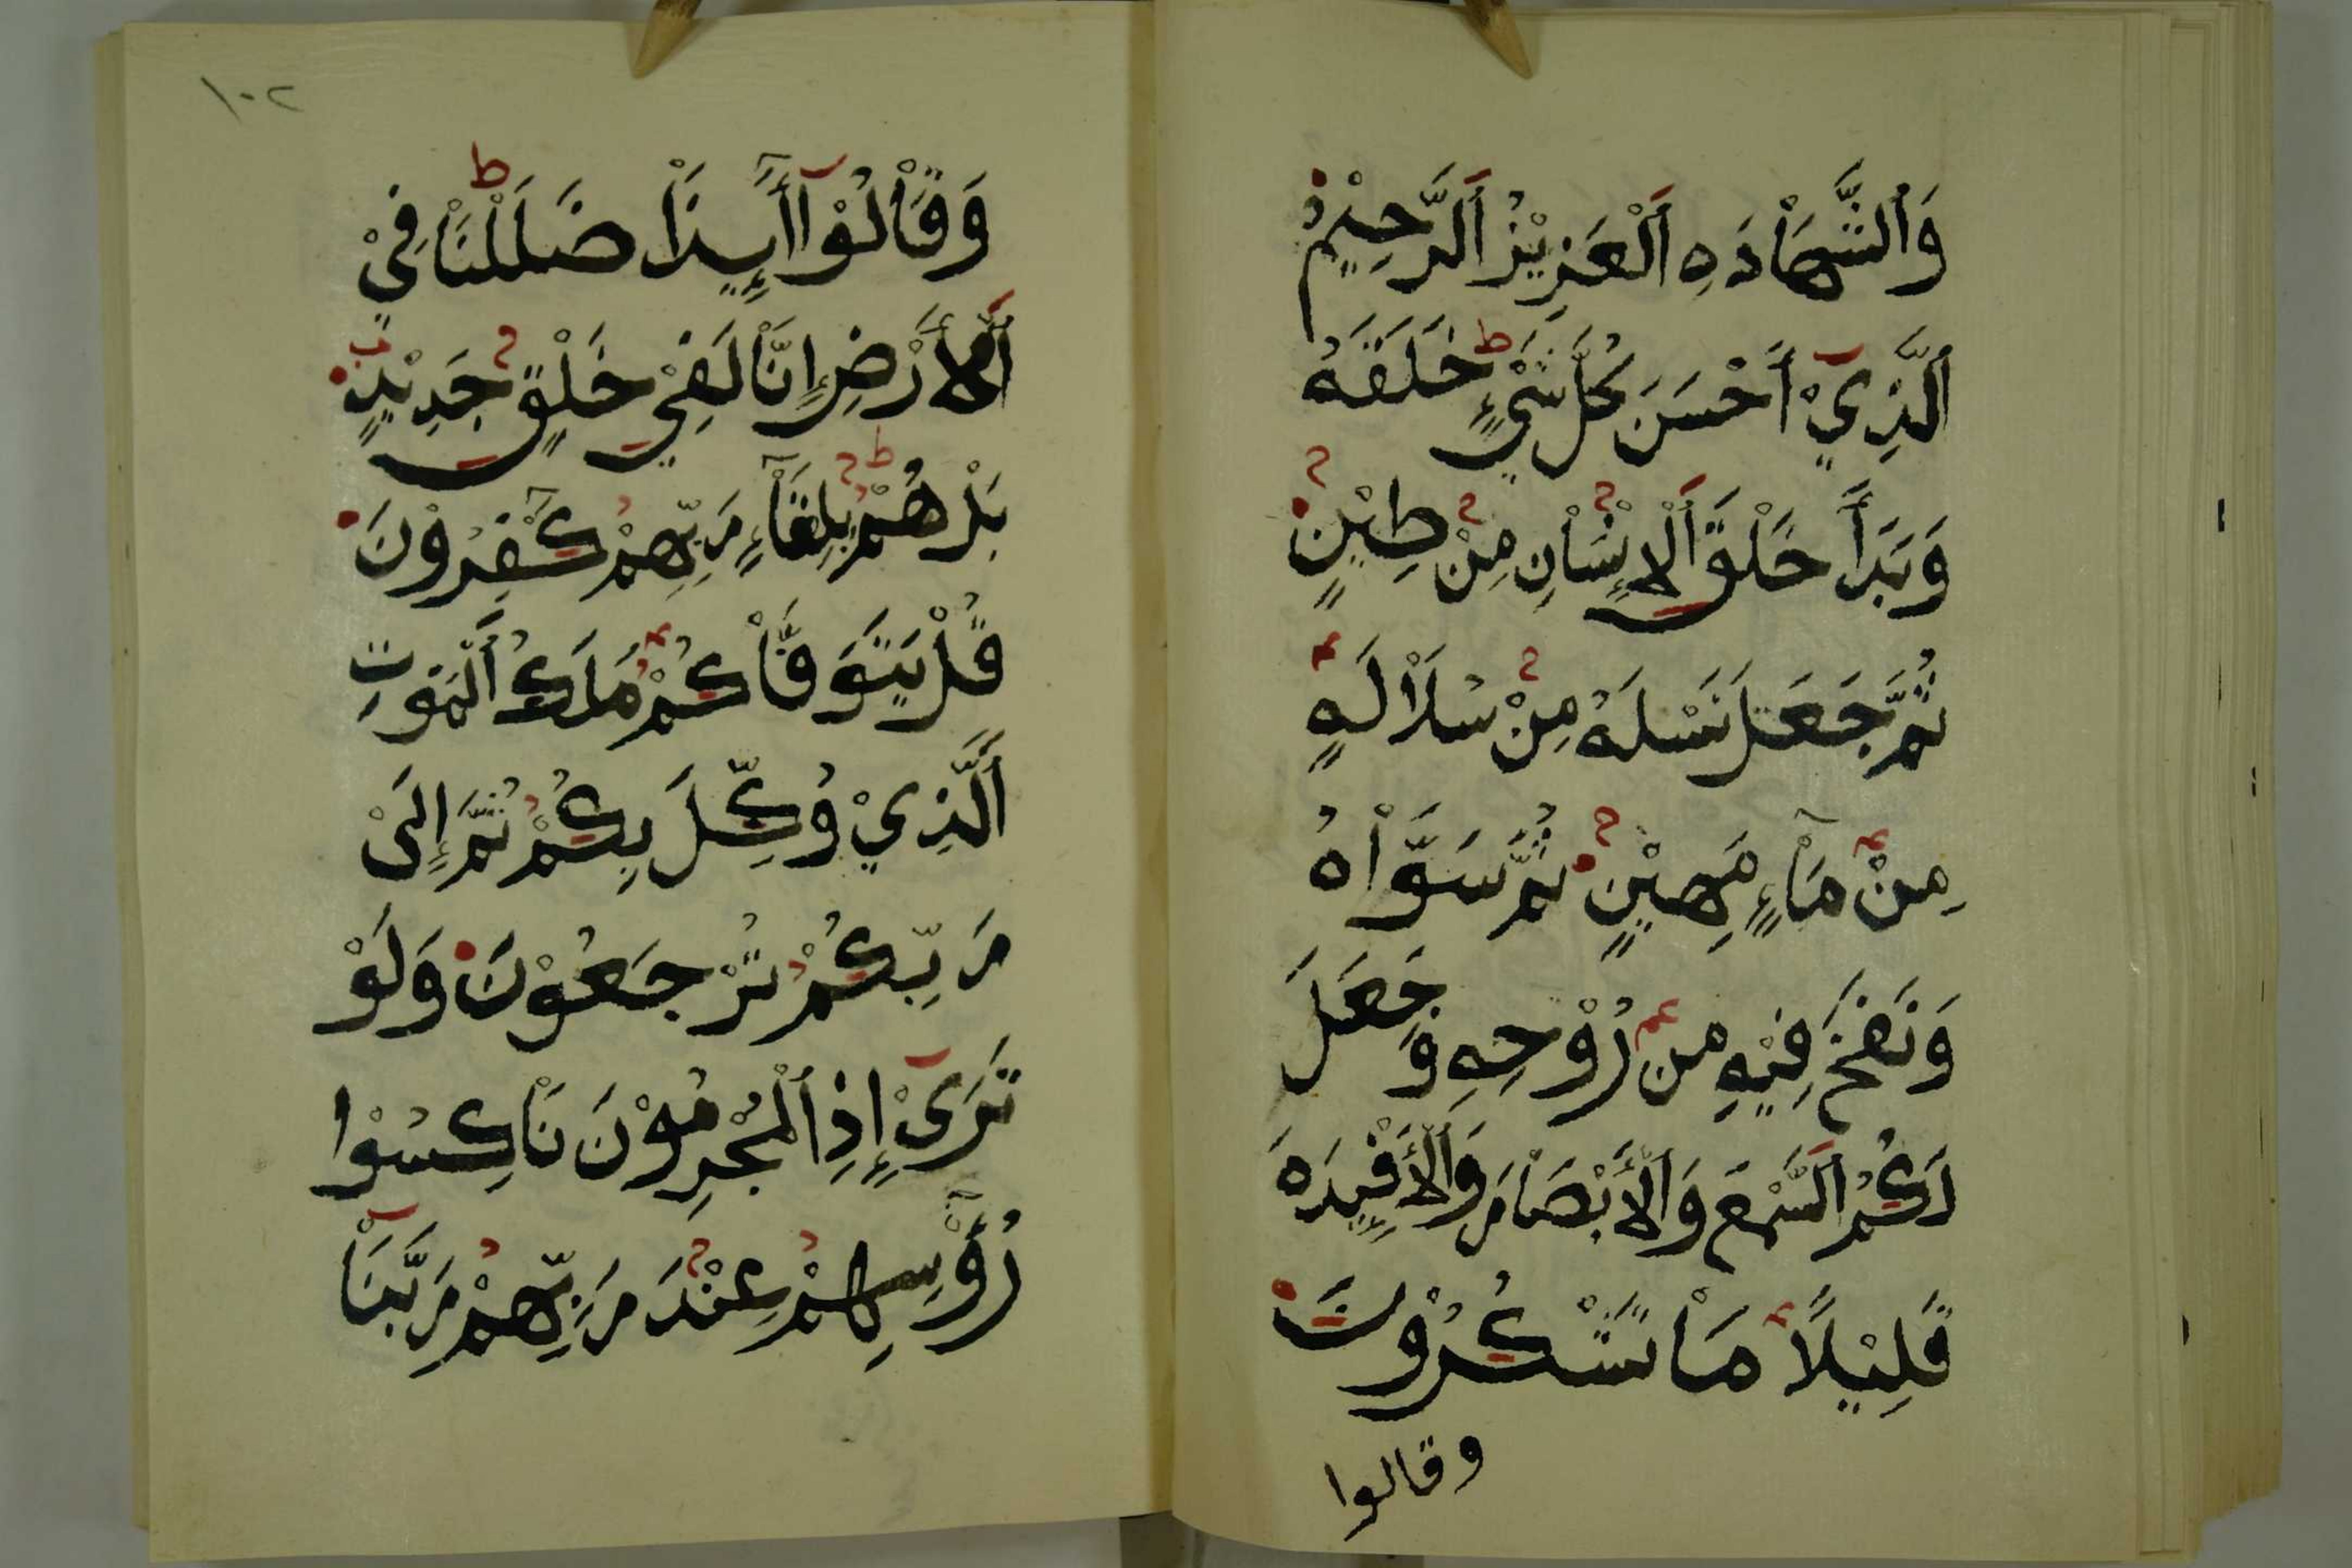 وَٱلشَّهَاْدَهِ ٱَلْعَزِيْزُ ٱَلرَّحِيْمُ
ٱَلَّذِيْٓ أَحْسَنَ كُلَّ شَيْءٍ خَلَقَهُ
وَبَدَأَ خَلْقَ ٱَلْإِنْسَاْنِ مِنْ طِيْنٍ
ثُمَّ جَعَلَ نَسْلَهُ مِنْ سُلَاْلَهٍ
مِنْ مَآْءٍ مَهِيْنٍ ثُمَّ سَوَّاْهُ
وَنَفَخَ فِيْهِ مِن رُوْحِهِ وَجَعَلَ
لَكُمُ ٱَلسَّمْعَ وَٱَلْأَبْصَاْرَ وَٱَلْأَفْئِدَهَ
قَلِيْلًا مَاْ تَشْكُرُوْنَ
وقالوا
١٠٢
وَقَاْلُوْآ أَءِذَاْ ضَلَلْنَاْ فِيْ
ٱَلْأَرْضِ إِنَّاْ لَفِيْ خَلْقٍ جَدِيْدٍ
بَلْ هُمْ بِلِقَآْءِ رَبِّهِمْ كَٰفِرُوْنَ
قُلْ يَتَوَفَّاْكُمْ مَلَكُ ٱَلْمَوتِ
ٱَلَّذِيْ وُكِّلَ بِكُمْ ثُمَّ إِلَىْ
رَبِّكُمْ تُرْجَعُوْنَ وَلَوْ
تَرَىْٓ إِذِ ٱلْمُجْرِمُوْنَ نَاْكِسُوْا
رُؤُوْسِهِمْ عِنْدَ رَبِّهِمْ رَبَّنَآْ